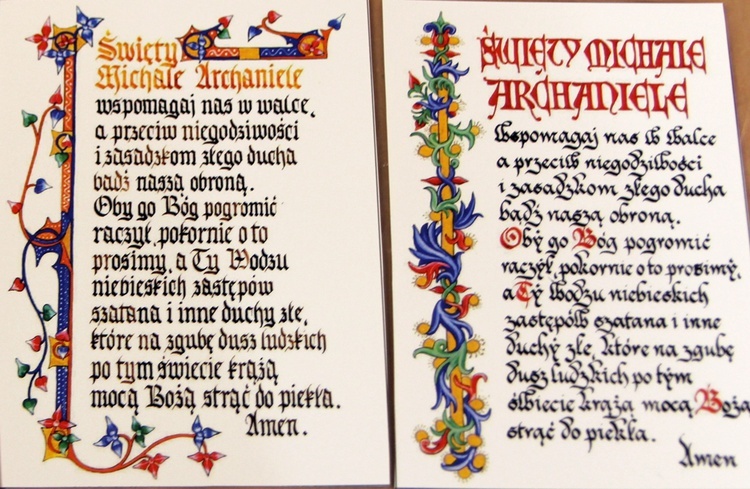 Święty
Michale Archaniele
wspomagaj nas w walce,
a przeciw niegodziwości
i zasadzkom złego ducha
bądź naszą obroną.
Oby go Bóg pogromić
raczył, pokornie o to
prosimy, a Ty Wodzu
niebieskich zastępów
szatana i inne duchy złe,
które na zgubę dusz ludzkich
po tym świecie krążą
mocą Bożą strąć do piekła.
Amen.
ŚWIĘTY MICHALE
ARCHANIELE
Wspomagaj nas w walce
a przeciw niegodziwości
i zasadzkom złego ducha
bądź naszą obroną.
Oby go Bóg pogromić
raczył, pokornie o to prosimy,
a Ty Wodzu niebieskich
zastępów szatana i inne
duchy złe, które na zgubę
dusz ludzkich po tym
świecie krążą mocą Bożą
strąć do piekła.
Amen